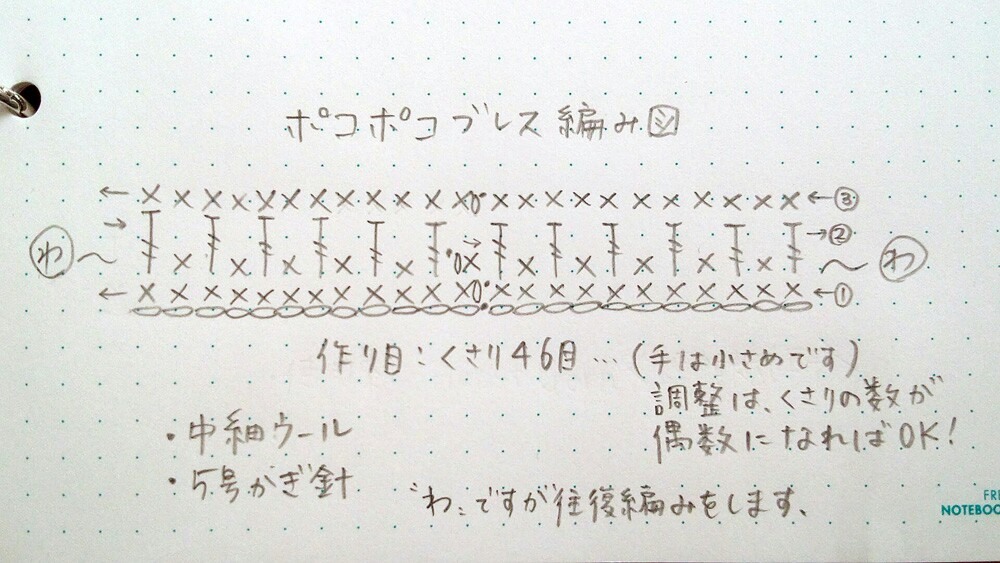 ポコポコブレス編み図
← ③
→ → ②
わ 〜 〜 わ
← ← ①
作り目：くさり46目…（手は小さめです）
調整は、くさりの数が
偶数になればOK！
・中細ウール
・5号かぎ針
“わ”ですが往復編みをします、
FRE
NOTEBOO